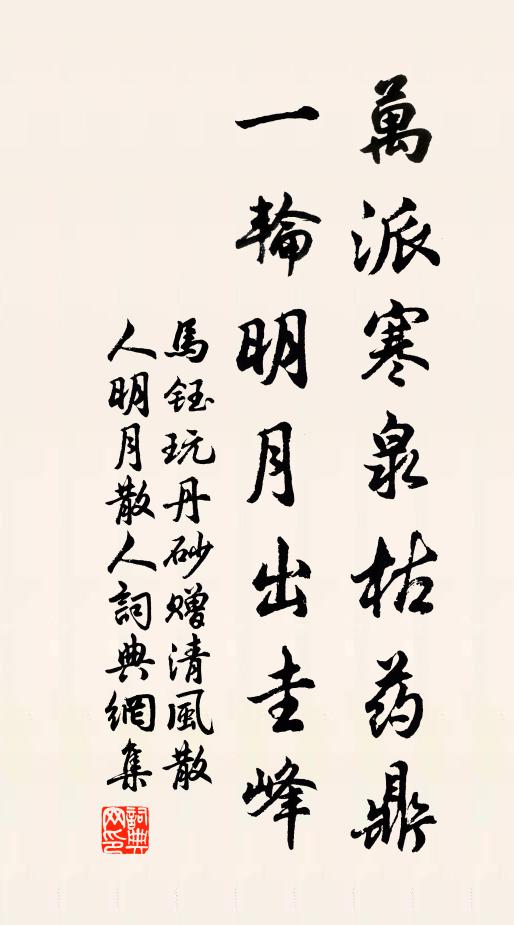 萬派寒泉枯药鼎
一輪明月出圭峰
馬鈺玩丹砂赠清風散
人明月散人詞典網集
詞典
网印